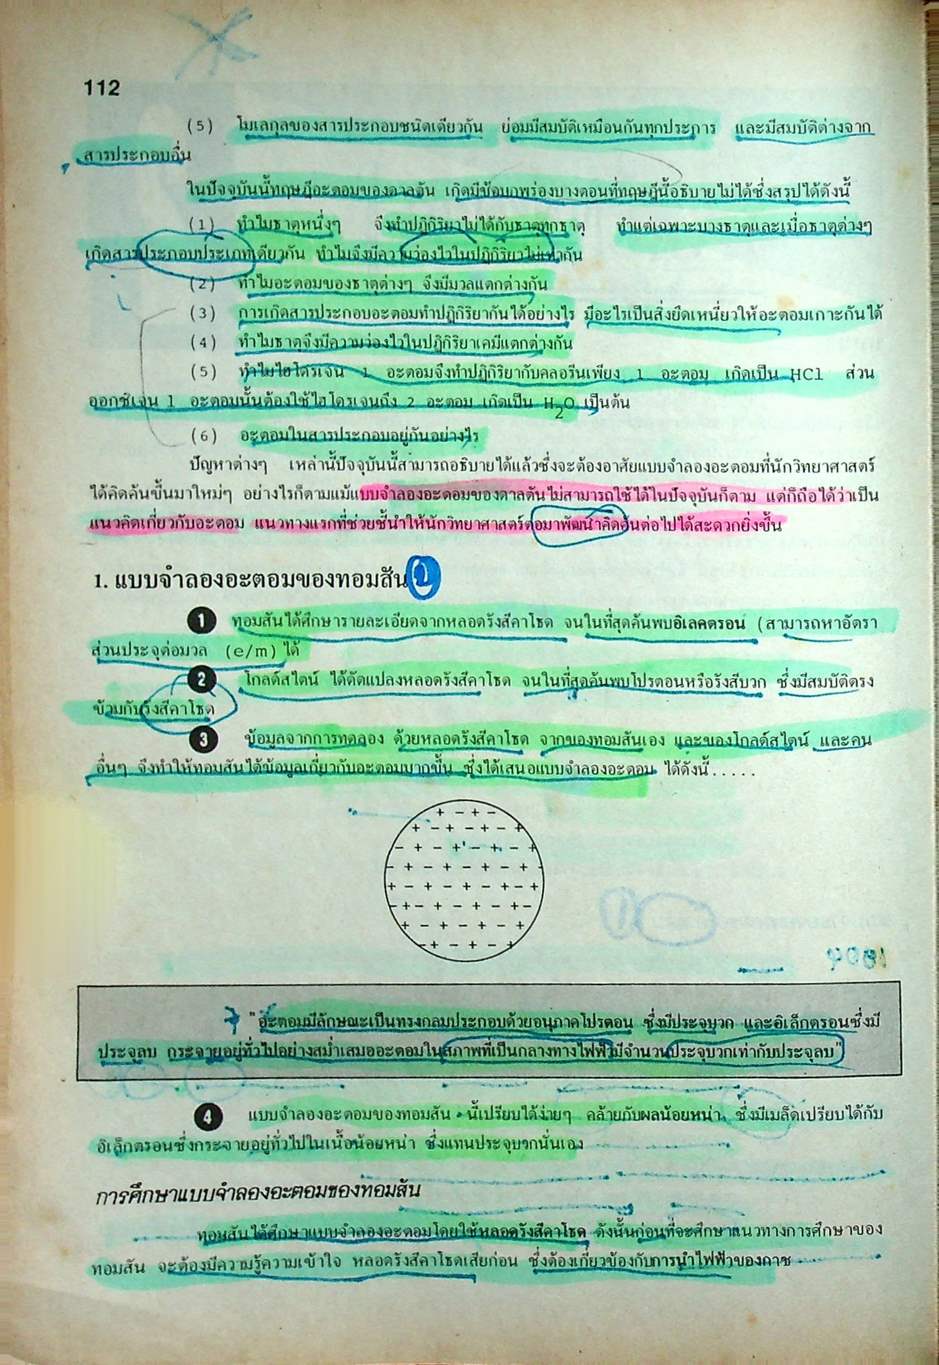 112
(5) โมเลกุลของสารประกอบชนิดเดียวกัน ย่อมมีสมบัติเหมือนกันทุกประการ และมีสมบัติต่างจาก
สารประกอบอื่น
ในปัจจุบันนี้ทฤษฎีอะตอมของดาลตัน เกิดมีข้อบกพร่องบางตอนที่ทฤษฎีนี้อธิบายไม่ได้ซึ่งสรุปได้ดังนี้
(1) ทำไมธาตุหนึ่งๆ จึงทำปฏิกิริยาไม่ได้กับธาตุทุกธาตุ ทำแต่เฉพาะบางธาตุและเมื่อธาตุต่างๆ
เกิดสารประกอบประเภทเดียวกัน ทำไมจึงมีความว่องไวในปฏิกิริยาไม่เท่ากัน
(2) ทำไมอะตอมของธาตุต่างๆ จึงมีมวลแตกต่างกัน
(3) การเกิดสารประกอบอะตอมทำปฏิกิริยากันได้อย่างไร มีอะไรเป็นสิ่งยึดเหนี่ยวให้อะตอมเกาะกันได้
(4) ทำไมธาตุจึงมีความว่องไวในปฏิกิริยาเคมีแตกต่างกัน
(5) ทำไมไฮโดรเจน 1 อะตอมจึงทำปฏิกิริยากับคลอรีนเพียง 1 อะตอม เกิดเป็น HCl ส่วน
ออกซิเจน 1 อะตอมนั้นต้องใช้ไฮโดรเจนถึง 2 อะตอม เกิดเป็น H₂O เป็นต้น
(6) อะตอมในสารประกอบอยู่กันอย่างไร
ปัญหาต่างๆ เหล่านี้ปัจจุบันนี้สามารถอธิบายได้แล้วซึ่งจะต้องอาศัยแบบจำลองอะตอมที่นักวิทยาศาสตร์
ได้คิดค้นขึ้นมาใหม่ๆ อย่างไรก็ตามแม้แบบจำลองอะตอมของดาลตันไม่สามารถใช้ได้ในปัจจุบันก็ตาม แต่ก็ถือได้ว่าเป็น
แนวคิดเกี่ยวกับอะตอม แนวทางแรกที่ช่วยชี้นำให้นักวิทยาศาสตร์ต่อมาพัฒนาคิดค้นต่อไปได้สะดวกยิ่งขึ้น
1. แบบจำลองอะตอมของทอมสัน
1 ทอมสันได้ศึกษารายละเอียดจากหลอดรังสีคาโธด จนในที่สุดค้นพบอิเลคตรอน (สามารถหาอัตรา
ส่วนประจุต่อมวล (e/m) ได้
2 โกลด์สไตน์ ได้ดัดแปลงหลอดรังสีคาโธด จนในที่สุดค้นพบโปรตอนหรือรังสีบวก ซึ่งมีสมบัติตรง
ข้ามกับรังสีคาโธด
3 ข้อมูลจากการทดลอง ด้วยหลอดรังสีคาโธด จากของทอมสันเอง และของโกลด์สไตน์ และคน
อื่นๆ จึงทำให้ทอมสันได้ข้อมูลเกี่ยวกับอะตอมมากขึ้น ซึ่งได้เสนอแบบจำลองอะตอม ได้ดังนี้.....
+ − + −
+ − + − + − +
− + − + − + − +
− + − + − + − +
+ − + − + − + − +
− + − + − + −
+ − + − + − +
− + − + − +
"อะตอมมีลักษณะเป็นทรงกลมประกอบด้วยอนุภาคโปรตอน ซึ่งมีประจุบวก และอิเล็กตรอนซึ่งมี
ประจุลบ กระจายอยู่ทั่วไปอย่างสม่ำเสมออะตอมในสภาพที่เป็นกลางทางไฟฟ้ามีจำนวนประจุบวกเท่ากับประจุลบ"
4 แบบจำลองอะตอมของทอมสัน นี้เปรียบได้ง่ายๆ คล้ายกับผลน้อยหน่า ซึ่งมีเมล็ดเปรียบได้กับ
อิเล็กตรอนซึ่งกระจายอยู่ทั่วไปในเนื้อน้อยหน่า ซึ่งแทนประจุบวกนั่นเอง
การศึกษาแบบจำลองอะตอมของทอมสัน
ทอมสันได้ศึกษาแบบจำลองอะตอมโดยใช้หลอดรังสีคาโธด ดังนั้นก่อนที่จะศึกษาแนวทางการศึกษาของ
ทอมสัน จะต้องมีความรู้ความเข้าใจ หลอดรังสีคาโธดเสียก่อน ซึ่งต้องเกี่ยวข้องกับการนำไฟฟ้าของกาซ